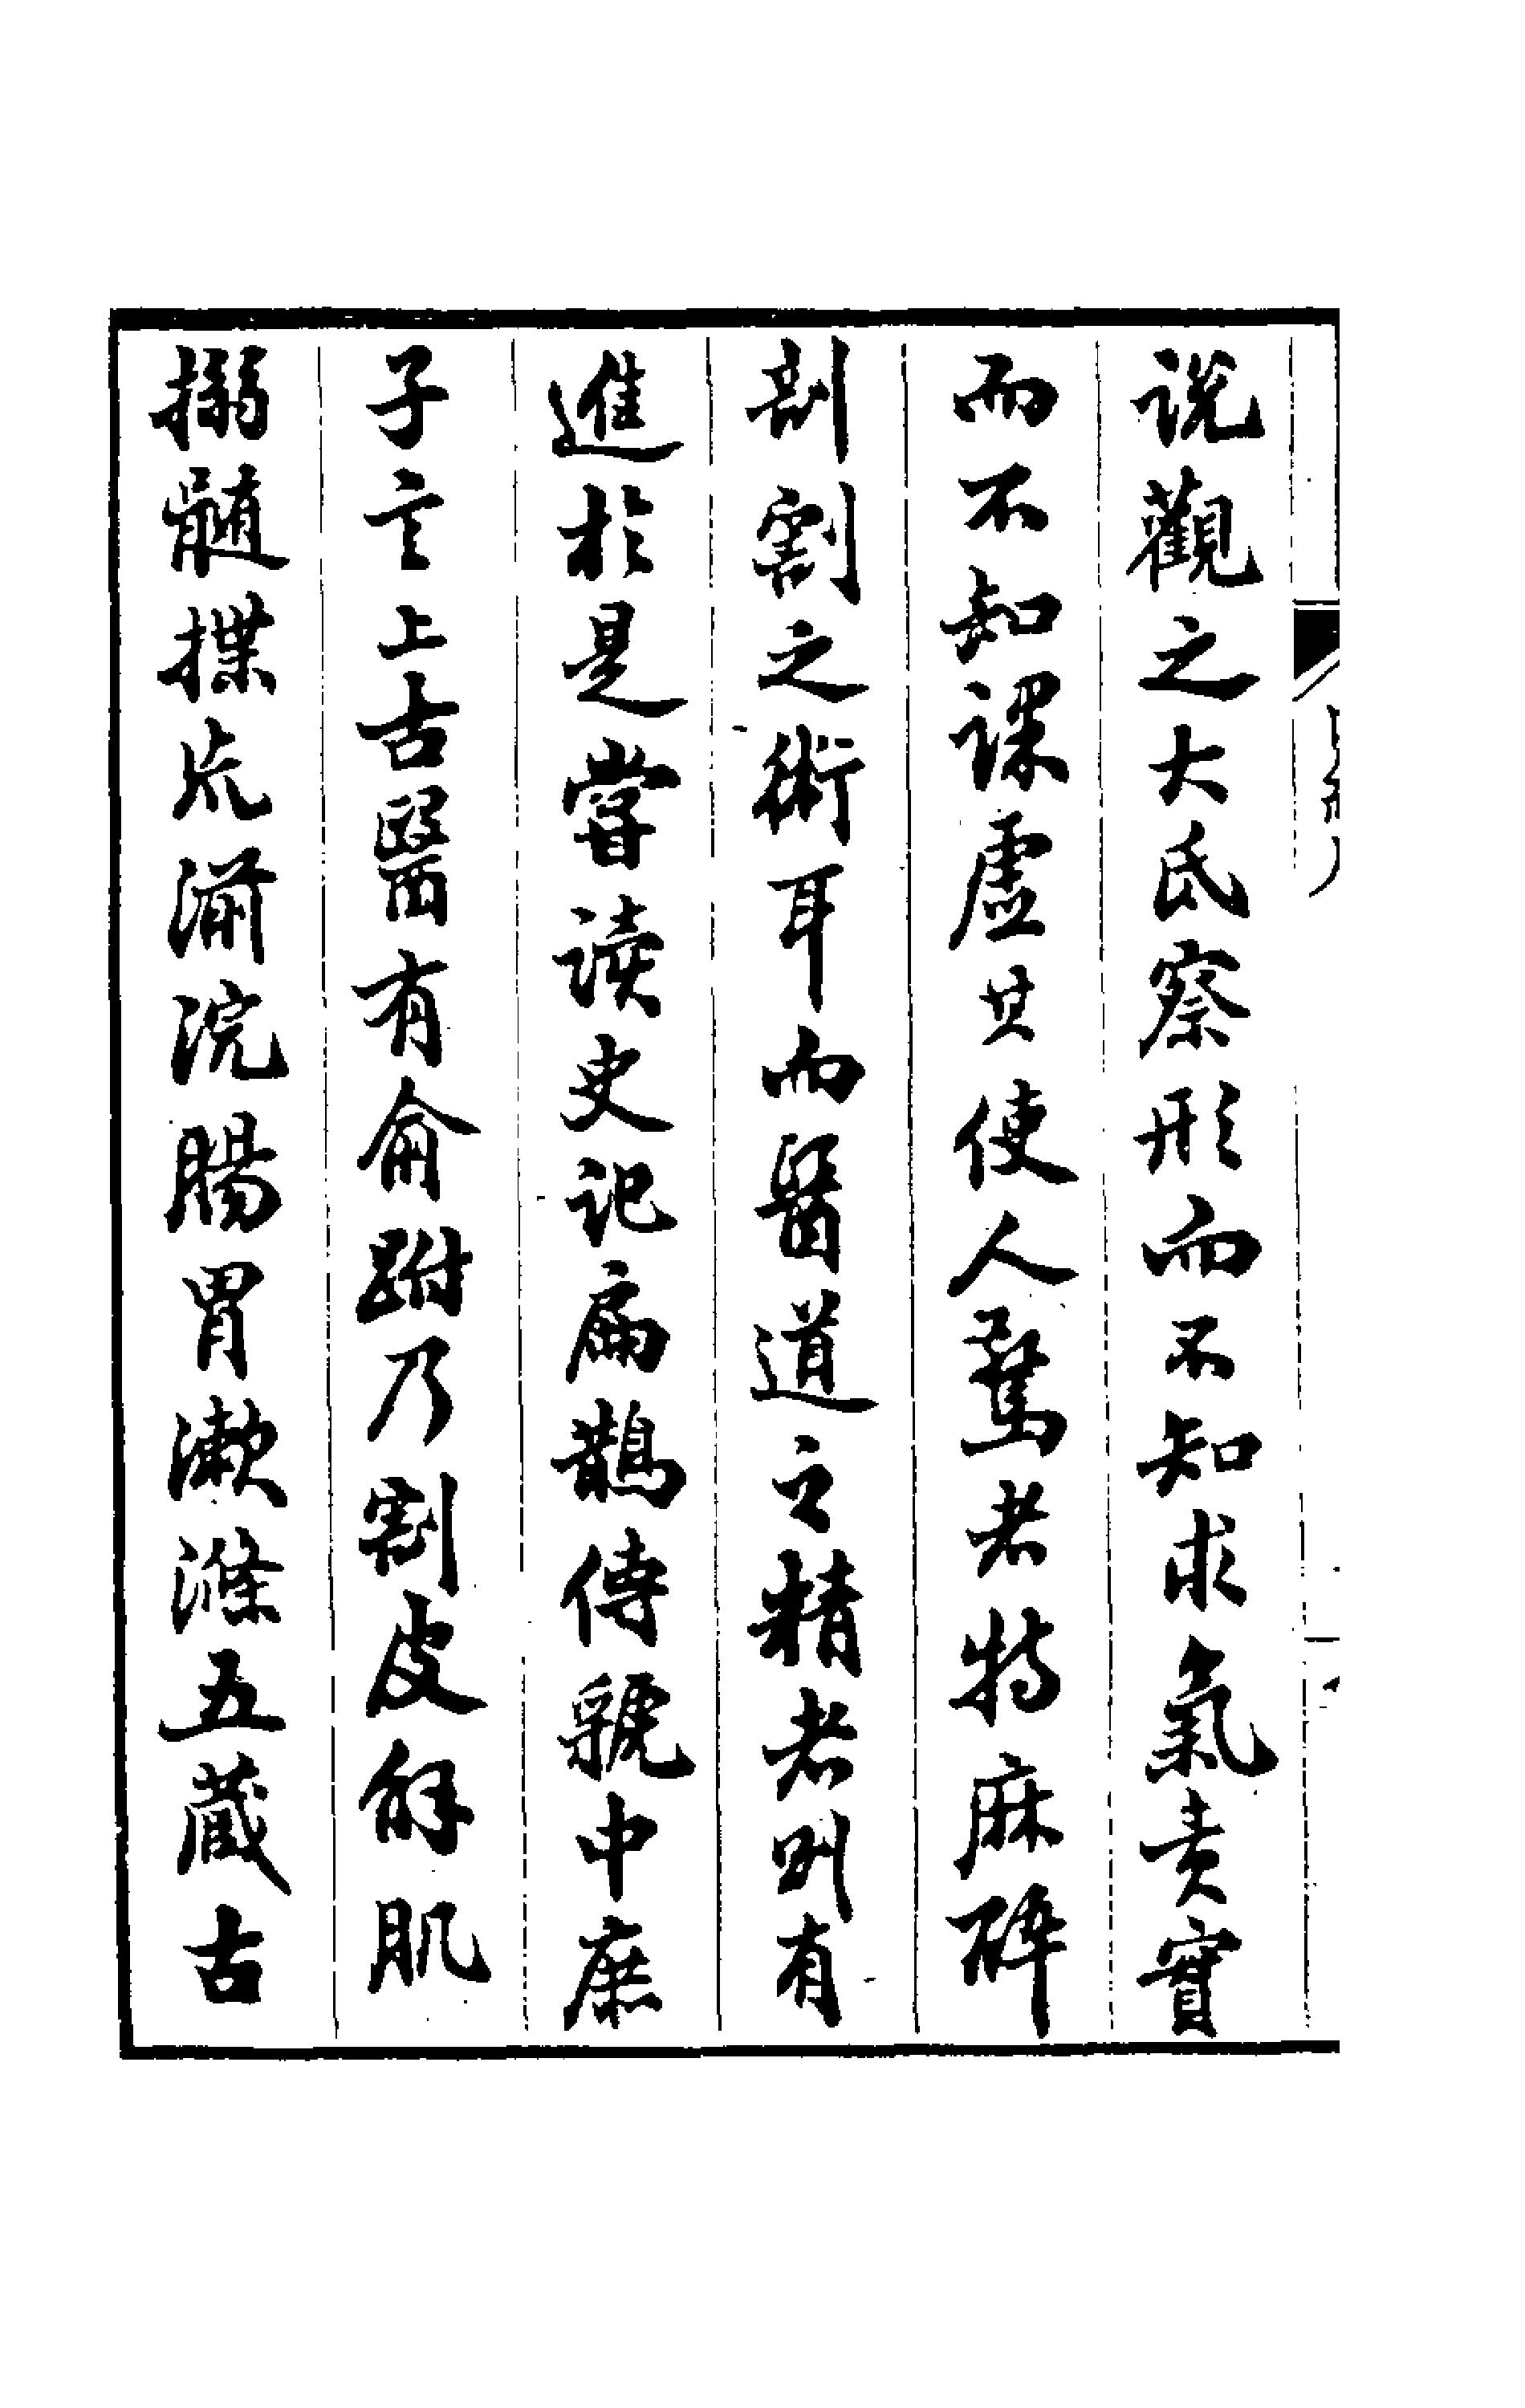 説觀之大氐察形而不知求氣責實
而不知課虛其使人驚者特麻醉
剖割之術耳而醫道之精者則有
進於是嘗讀史記扁鵲傳虢中庶
子言上古醫有俞跗乃割皮解肌
搦髓揲荒湔浣腸胃漱滌五藏古